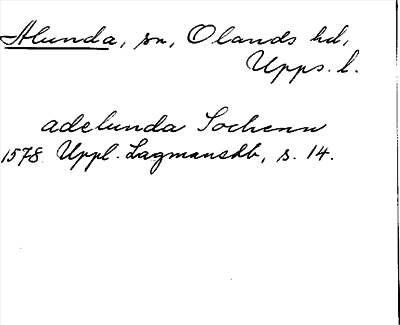 Alunda, sn, Olands hd,
Upps. l.
adelunda Sochenn
1578 Uppl. Lagmansdb, s. 14.